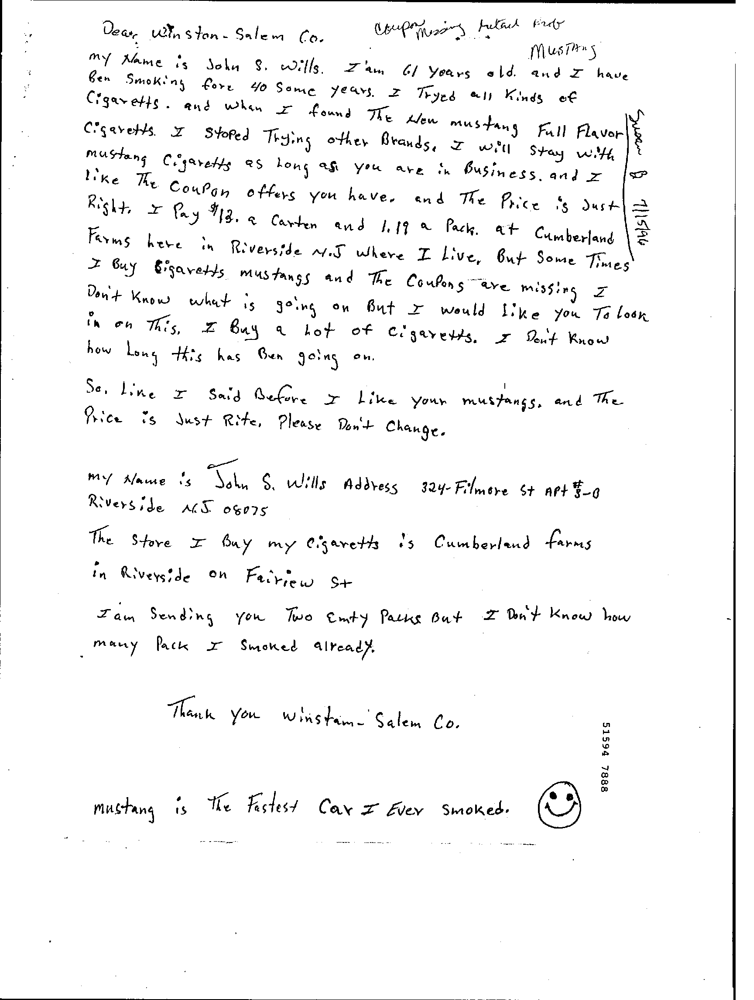 Dear Winston-Salem Co.
Coupon Missing Retail Prob
MUSTANG
my Name is John S. Wills. I'am 61 Years old. and I have
Ben Smoking fore 40 Some years. I Tryed all Kinds of
Cigaretts. and when I found The New mustang Full Flavor
Cigaretts. I Stoped Trying other Brands. I will Stay with
mustang Cigaretts as Long as you are in Business. and I
Like The Coupon offers you have. and The Price is Just
Right. I Pay $12. a Carten and 1.19 a Pack. at Cumberland
Farms here in Riverside N.J where I Live. But Some Times
I Buy Cigaretts mustangs and The Coupons are missing I
Don't Know what is going on But I would Like you To Look
in on This. I Buy a Lot of Cigaretts. I Don't Know
how Long this has Ben going on.
So. Like I Said Before I Like your mustangs. and The
Price is Just Rite. Please Don't Change.
my Name is John S. Wills Address 324-Filmore St APt #3-B
Riverside N.J 08075
The Store I Buy my Cigaretts is Cumberland farms
in Riverside on Fairiew St
I am Sending you Two Emty Packs But I Don't Know how
many Pack I Smoked already.
Thank you Winstam-Salem Co.
mustang is The Fastest Car I Ever Smoked.
Susan B 7/15/96
51594 7888